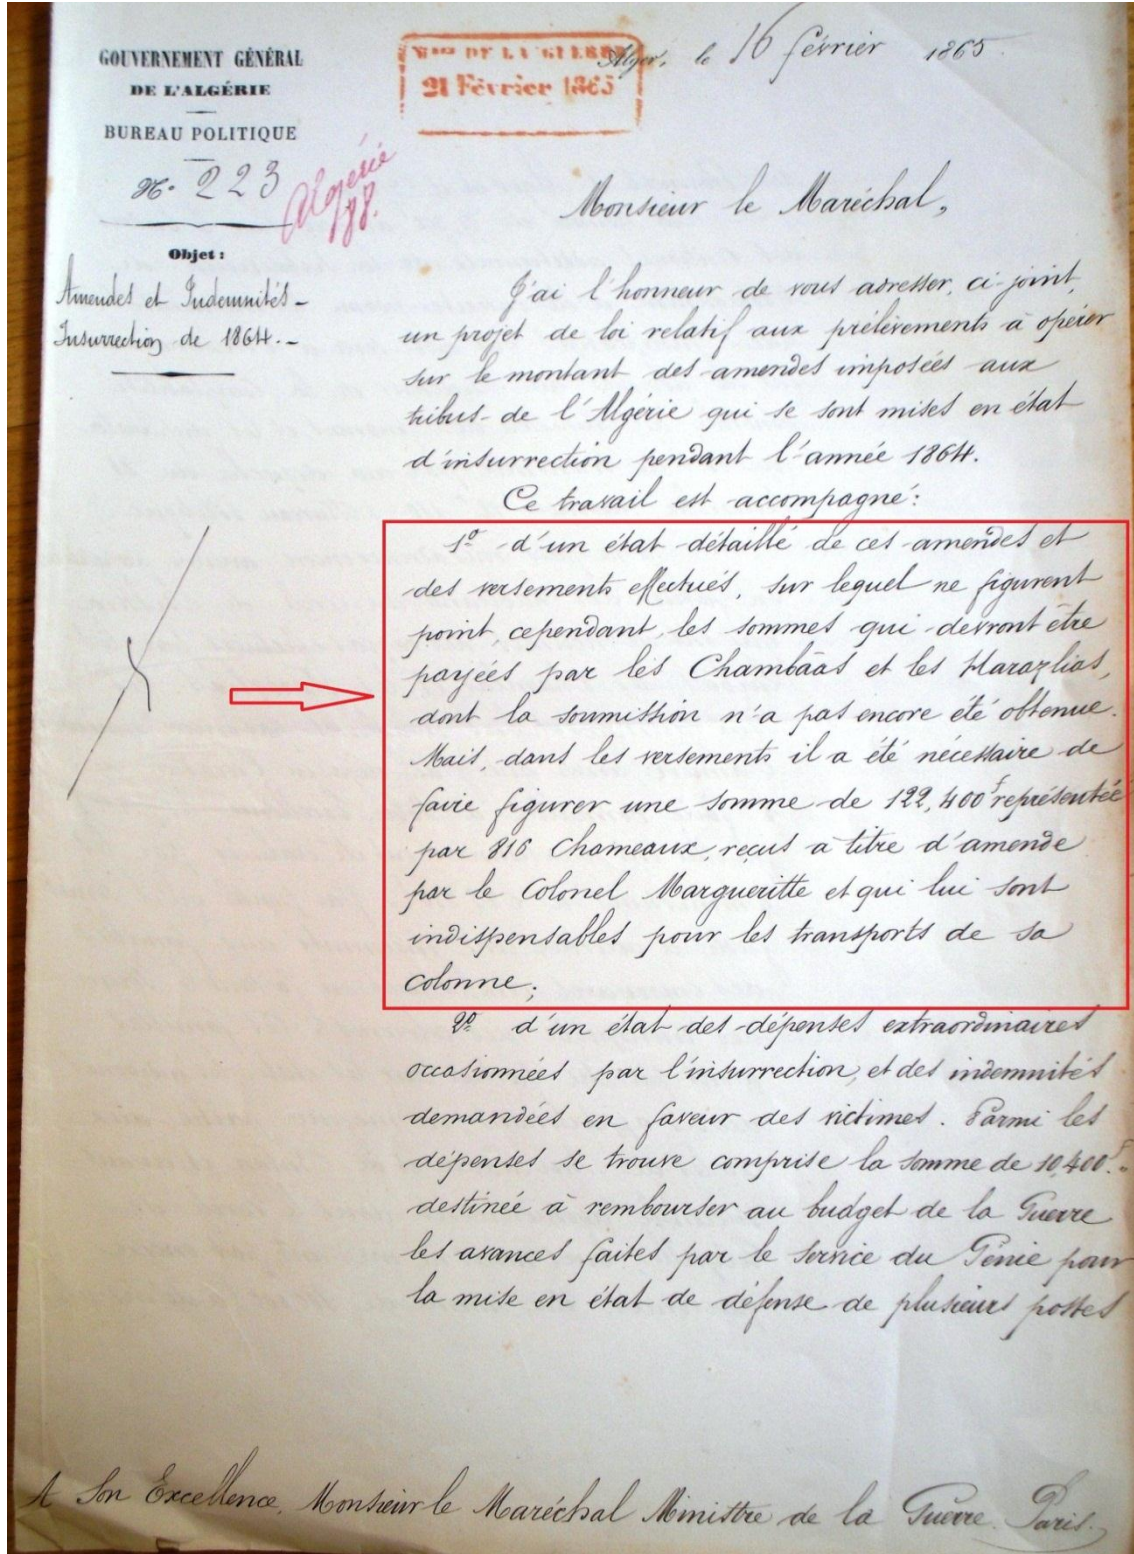 GOUVERNEMENT GÉNÉRAL
DE L'ALGÉRIE
BUREAU POLITIQUE
N.º 223
Algérie
188.
Objet :
Amendes et Indemnités -
Insurrection de 1864. -
Mère DE LA GUERRE
21 Février 1865
Alger, le 16 février 1865.
Monsieur le Maréchal,
J'ai l'honneur de vous adresser, ci-joint,
un projet de loi relatif aux prélèvements à opérer
sur le montant des amendes imposées aux
tribus de l'Algérie qui se sont mises en état
d'insurrection pendant l'année 1864.
Ce travail est accompagné :
1º d'un état détaillé de ces amendes et
des versements effectués, sur lequel ne figurent
point, cependant, les sommes qui devront être
payées par les Chambâas et les Harazlias,
dont la soumission n'a pas encore été obtenue.
Mais, dans les versements il a été nécessaire de
faire figurer une somme de 122,400f représentée
par 816 Chameaux, reçus à titre d'amende
par le Colonel Margueritte et qui lui sont
indispensables pour les transports de sa
colonne ;
2º d'un état des dépenses extraordinaires
occasionnées par l'insurrection, et des indemnités
demandées en faveur des victimes. Parmi les
dépenses se trouve comprise la somme de 10,400f.
destinée à rembourser au budget de la Guerre
les avances faites par le service du Génie pour
la mise en état de défense de plusieurs postes
A Son Excellence, Monsieur le Maréchal Ministre de la Guerre. Paris.